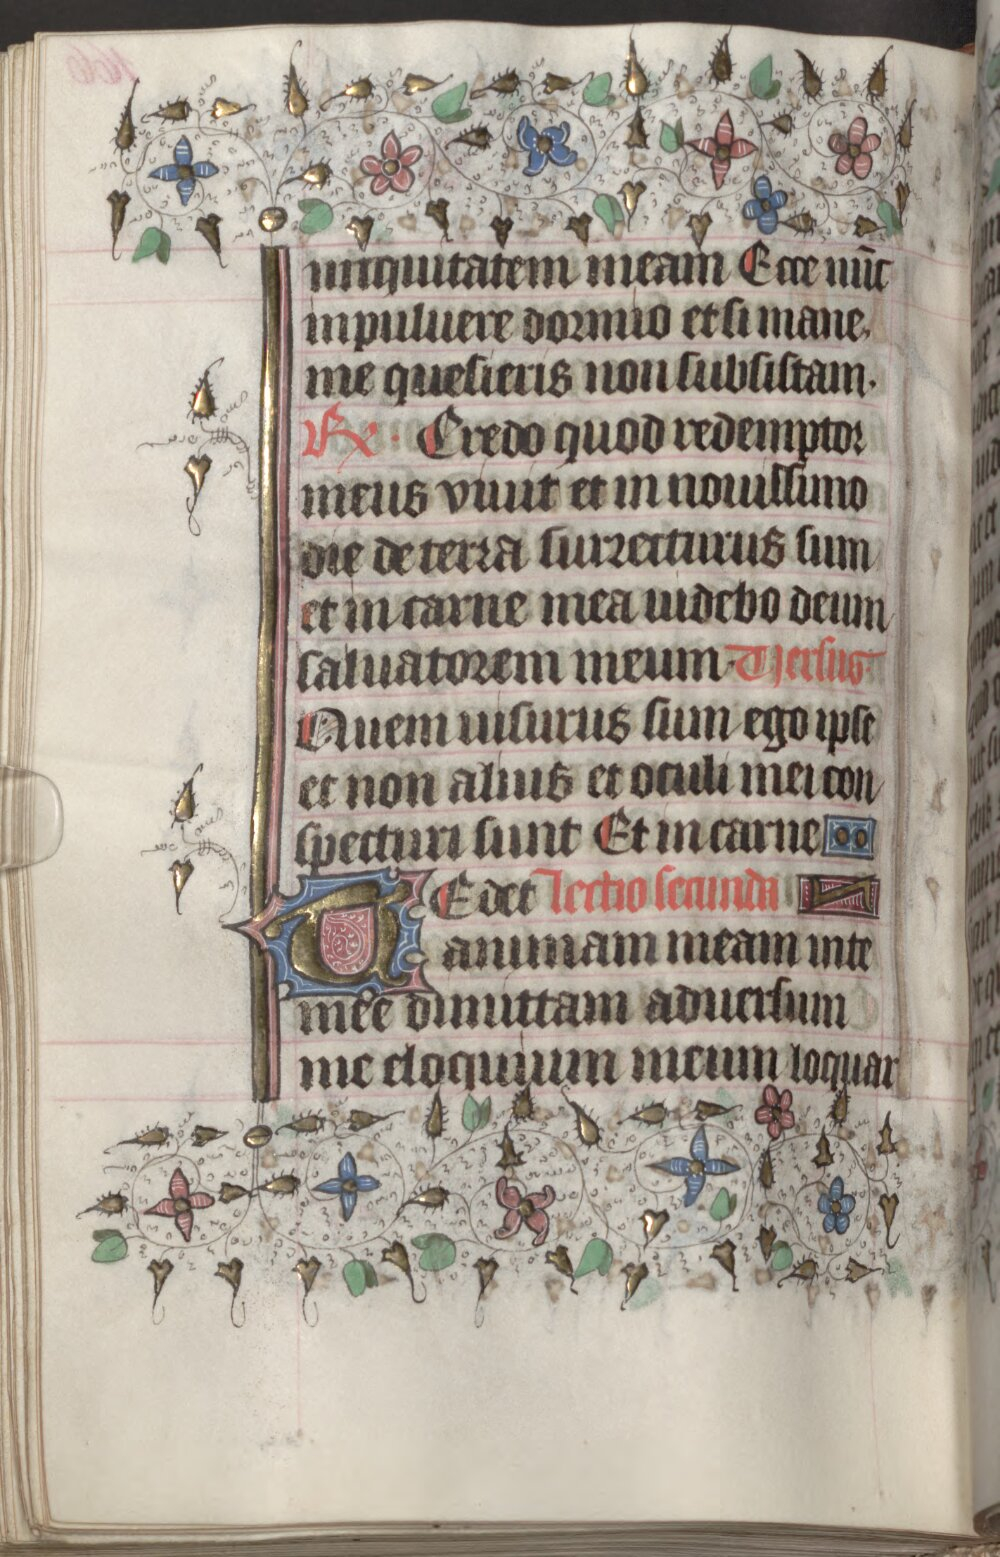 iniquitatem meam Ecce nūc
in puluere dormio et si mane
me quesieris non subsistam.
R̃. Credo quod redemptor
meus viuit et in nouissimo
die de terra surrecturus sum
et in carne mea uidebo deum
saluatorem meum. Versus
Quem uisurus sum ego ipse
et non alius et oculi mei con
specturi sunt Et in carne
TEdet lectio secunda
animam meam uite
mee dimittam aduersum
me eloquium meum loquar